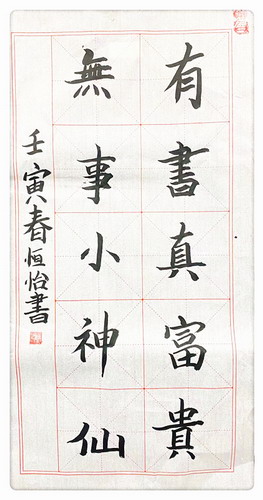 有書真富貴
無事小神仙
壬寅春恒怡書